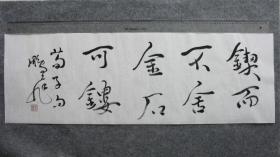 鍥而
不舍
金石
可鏤
荀子句